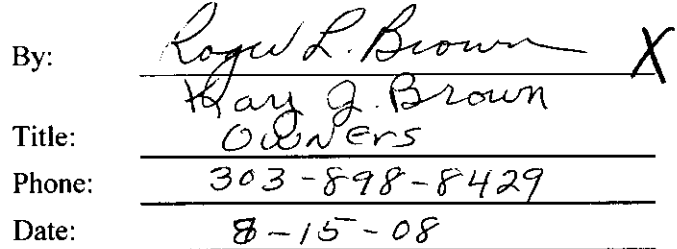 By: Roger L. Brown X
Kay J. Brown
Title: Owners
Phone: 303-898-8429
Date: 8-15-08